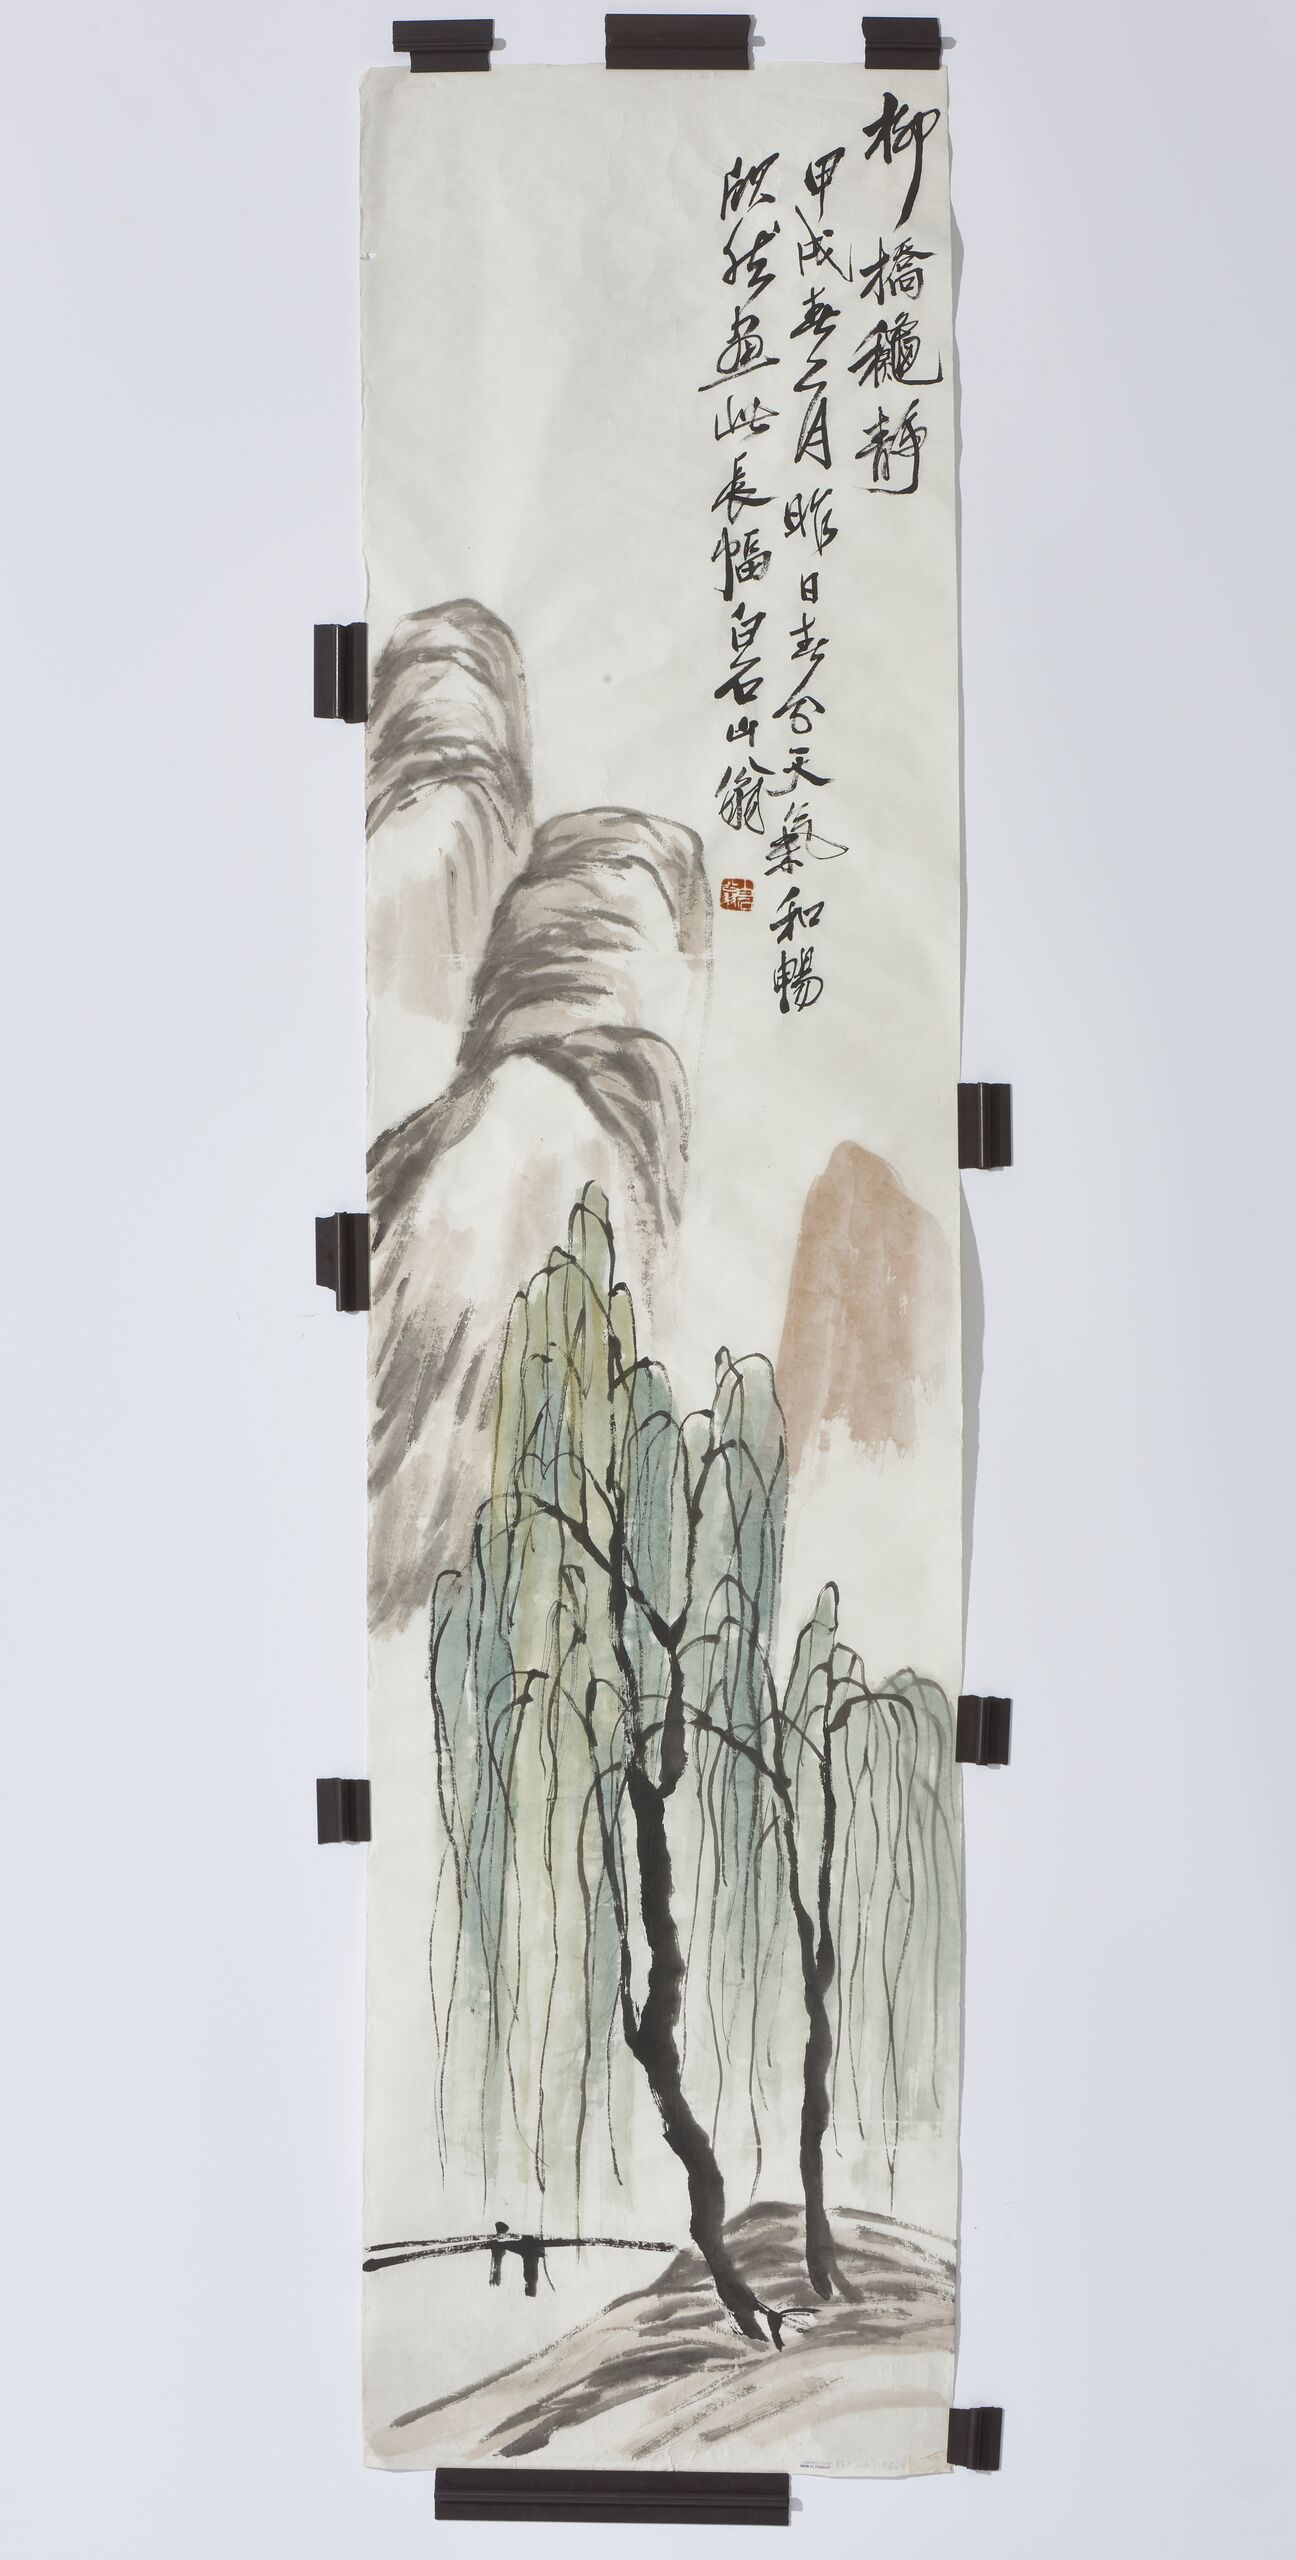 柳橋穐靜
甲戌春二月昨日春分天氣和暢
欣然画此長幅白石山翁